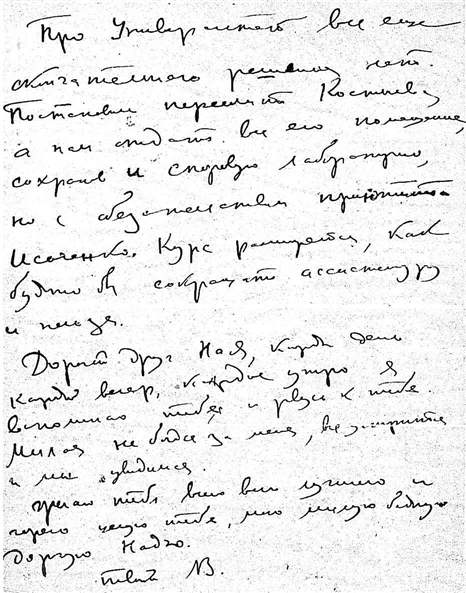 Про Университет все еще
окончательного решения нет.
Постановили переселить Костычева,
а нам отдать все его помещение,
сохранив и споровую лабораторию,
но с обязательством приютить
Исаченко. Курс расширяется, как
будто бы сокращать ассистентуру
и нельзя.
Дорогой друг Надя, каждый день
каждый вечер, каждое утро я
вспоминаю тебя и рвусь к тебе.
Милая не бойся за меня, все
и мы увидимся.
тебя и
горячо целую тебя, мою милую бедную
дорогую Надю.
твой